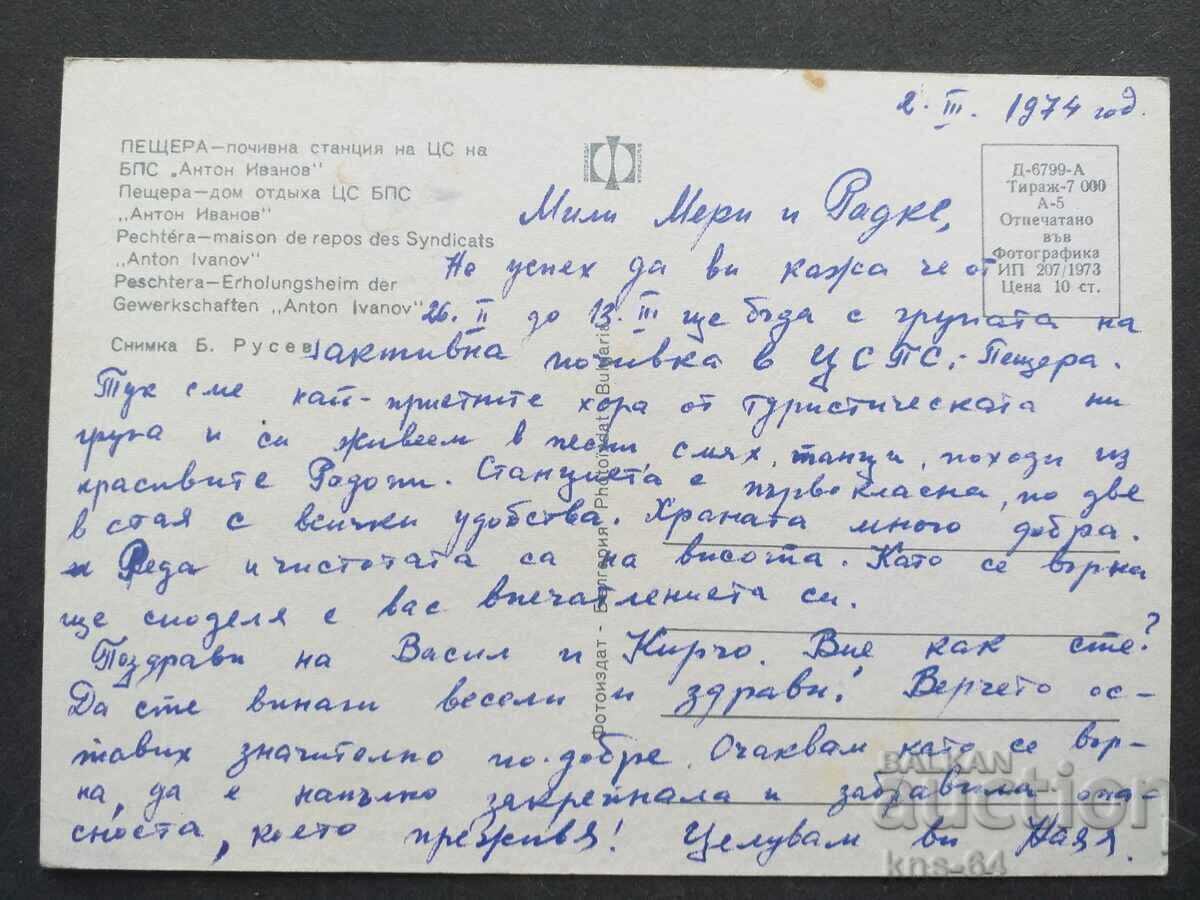 2. III. 1974 год.
ПЕЩЕРА—почивна станция на ЦС на
БПС „Антон Иванов"
Пещера—дом отдыха ЦС БПС
„Антон Иванов"
Pechtéra—maison de repos des Syndicats
„Anton Ivanov"
Peschtera—Erholungsheim der
Gewerkschaften „Anton Ivanov"
Снимка Б. Русев
Д-6799-А
Тираж-7 000
А-5
Отпечатано
във
Фотографика
ИП 207/1973
Цена 10 ст.
Фотоиздат - България Photoizdat Bulgaria
Мили Мери и Радке,
Не успех да ви кажа че от
26. II до 13. III ще бъда с групата на
активна почивка в ЦСПС - Пещера.
Тук сме най-приятните хора от туристическата ни
група и си живеем в песни, смях, танци, походи из
красивите Родопи. Станцията е първокласна, по две
в стая с всички удобства. Храната много добра.
Реда и чистотата са на висота. Като се върна
ще споделя с вас впечатленията си.
Поздрави на Васил и Кирчо. Вие как сте?
Да сте винаги весели и здрави! Верчето ос-
тавих значително по-добре. Очаквам като се вър-
на, да е напълно закрепнала и забравила опа-
сността, което преживя! Целувам ви
BALKAN
auction
kns-64